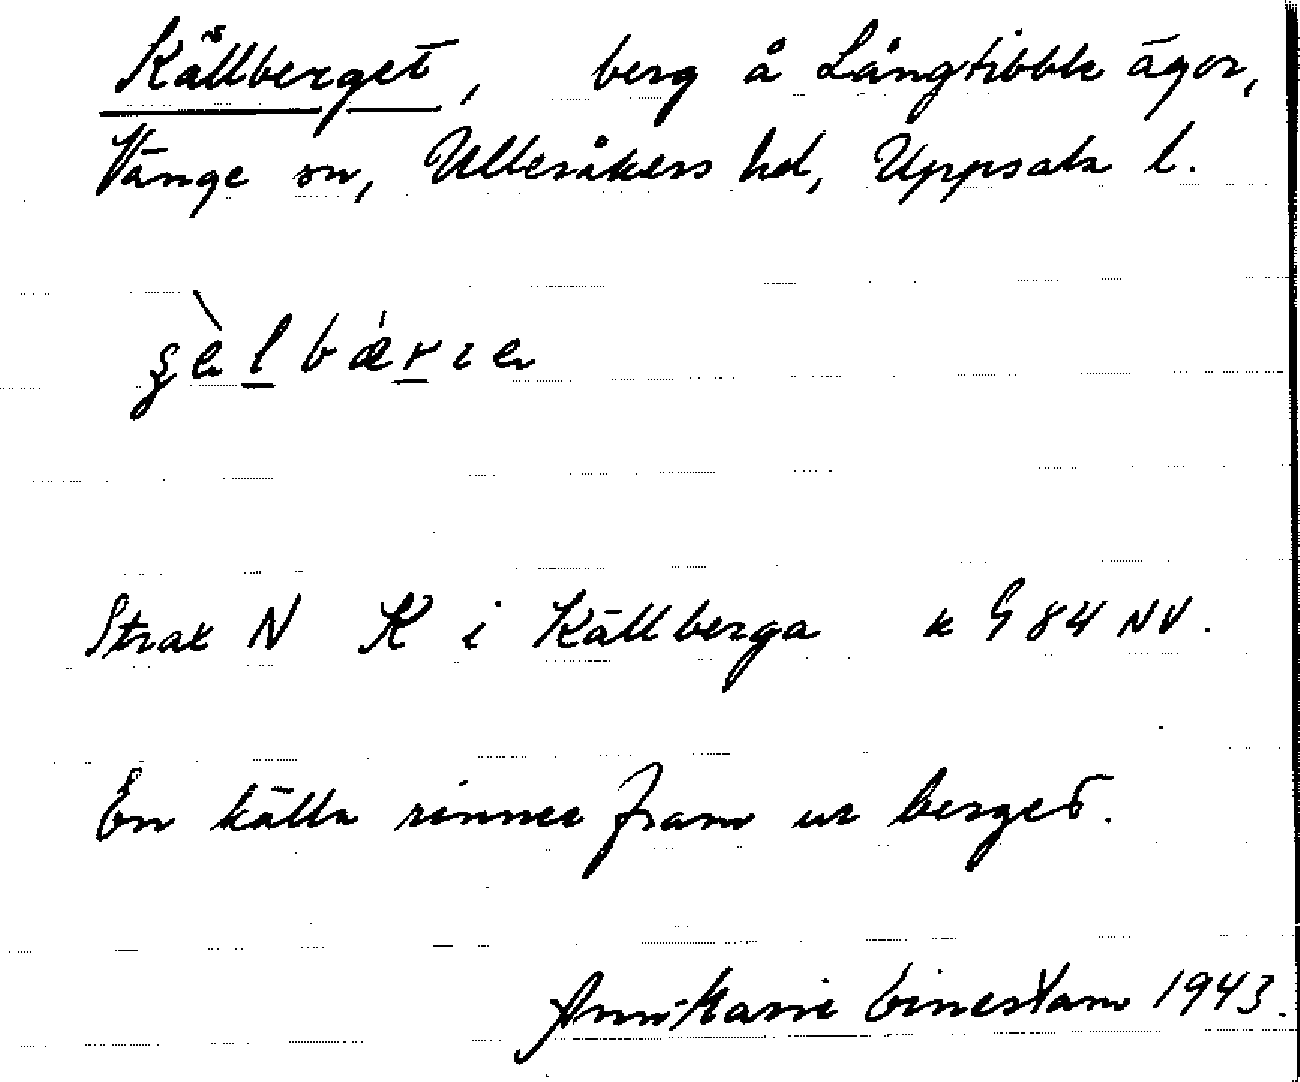 Källberget, berg å Långtibble ägor,
Vänge sn, Ulleråkers hd, Uppsala l.
Strax N K i Källberga k G 84 NV.
En källa rinner fram ur berget.
Ann-Marie 1943.